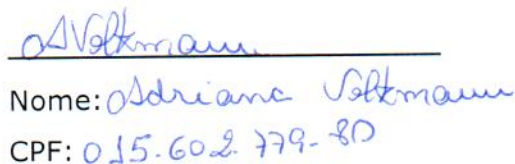 AVoltmann
Nome: Adriana Voltmann
CPF: 015.602.779-80